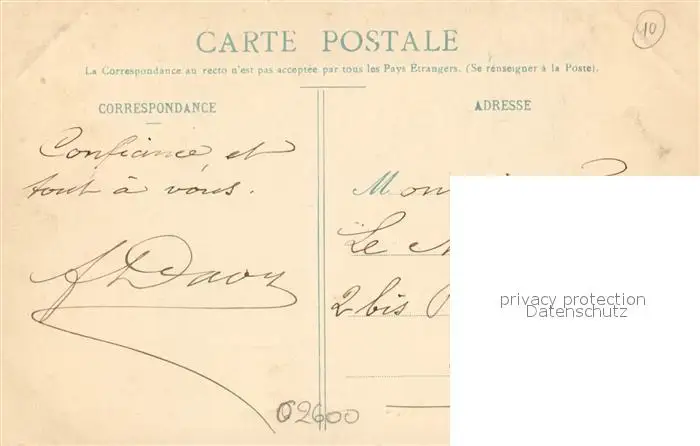 10
CARTE POSTALE
La Correspondance au recto n'est pas acceptée par tous les Pays Étrangers. (Se renseigner à la Poste).
CORRESPONDANCE
ADRESSE
Confiance et
tout à vous.
Mon
Le
2 bis
privacy protection
Datenschutz
02600